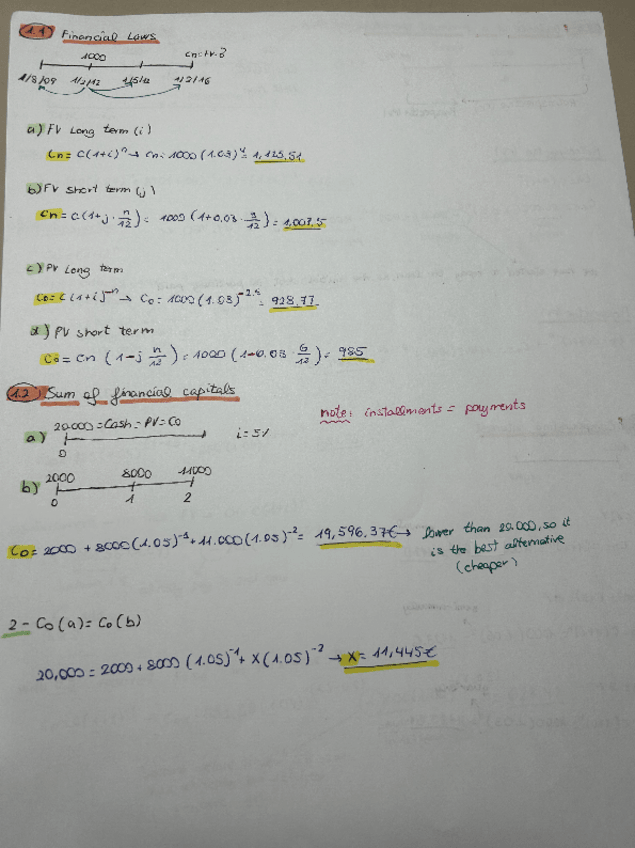 1.1 Financial Laws
1000
1/8/09 1/2/12 1/5/12 1/2/16
a) FV Long term (i)
Cn = C(1+i)ⁿ → Cn = 1000 (1.03)⁴ = 1,125,51
b) FV short term (j)
Cn = C(1+j · n/12) = 1000 (1+0,03 · 3/12) = 1,007,5
c) PV Long term
C0 = C (1+i)⁻ⁿ → C0 = 1000 (1.03)⁻²·⁵ = 928,77
d) PV short term
C0 = Cn (1-j n/12) = 1000 (1-0.03 · 6/12) = 985
1.2. Sum of financial capitals
note: installments = payments
20.000 = Cash = PV = C0
a) i = 5%
0
2000 8000 11000
b)
0 1 2
C0 = 2000 + 8000 (1.05)⁻¹ + 11.000 (1.05)⁻² = 19,596,37€ → lower than 20.000, so it
is the best alternative
(cheaper)
2 - C0 (a) = C0 (b)
20,000 = 2000 + 8000 (1.05)⁻¹ + X (1.05)⁻² → X = 11,445€